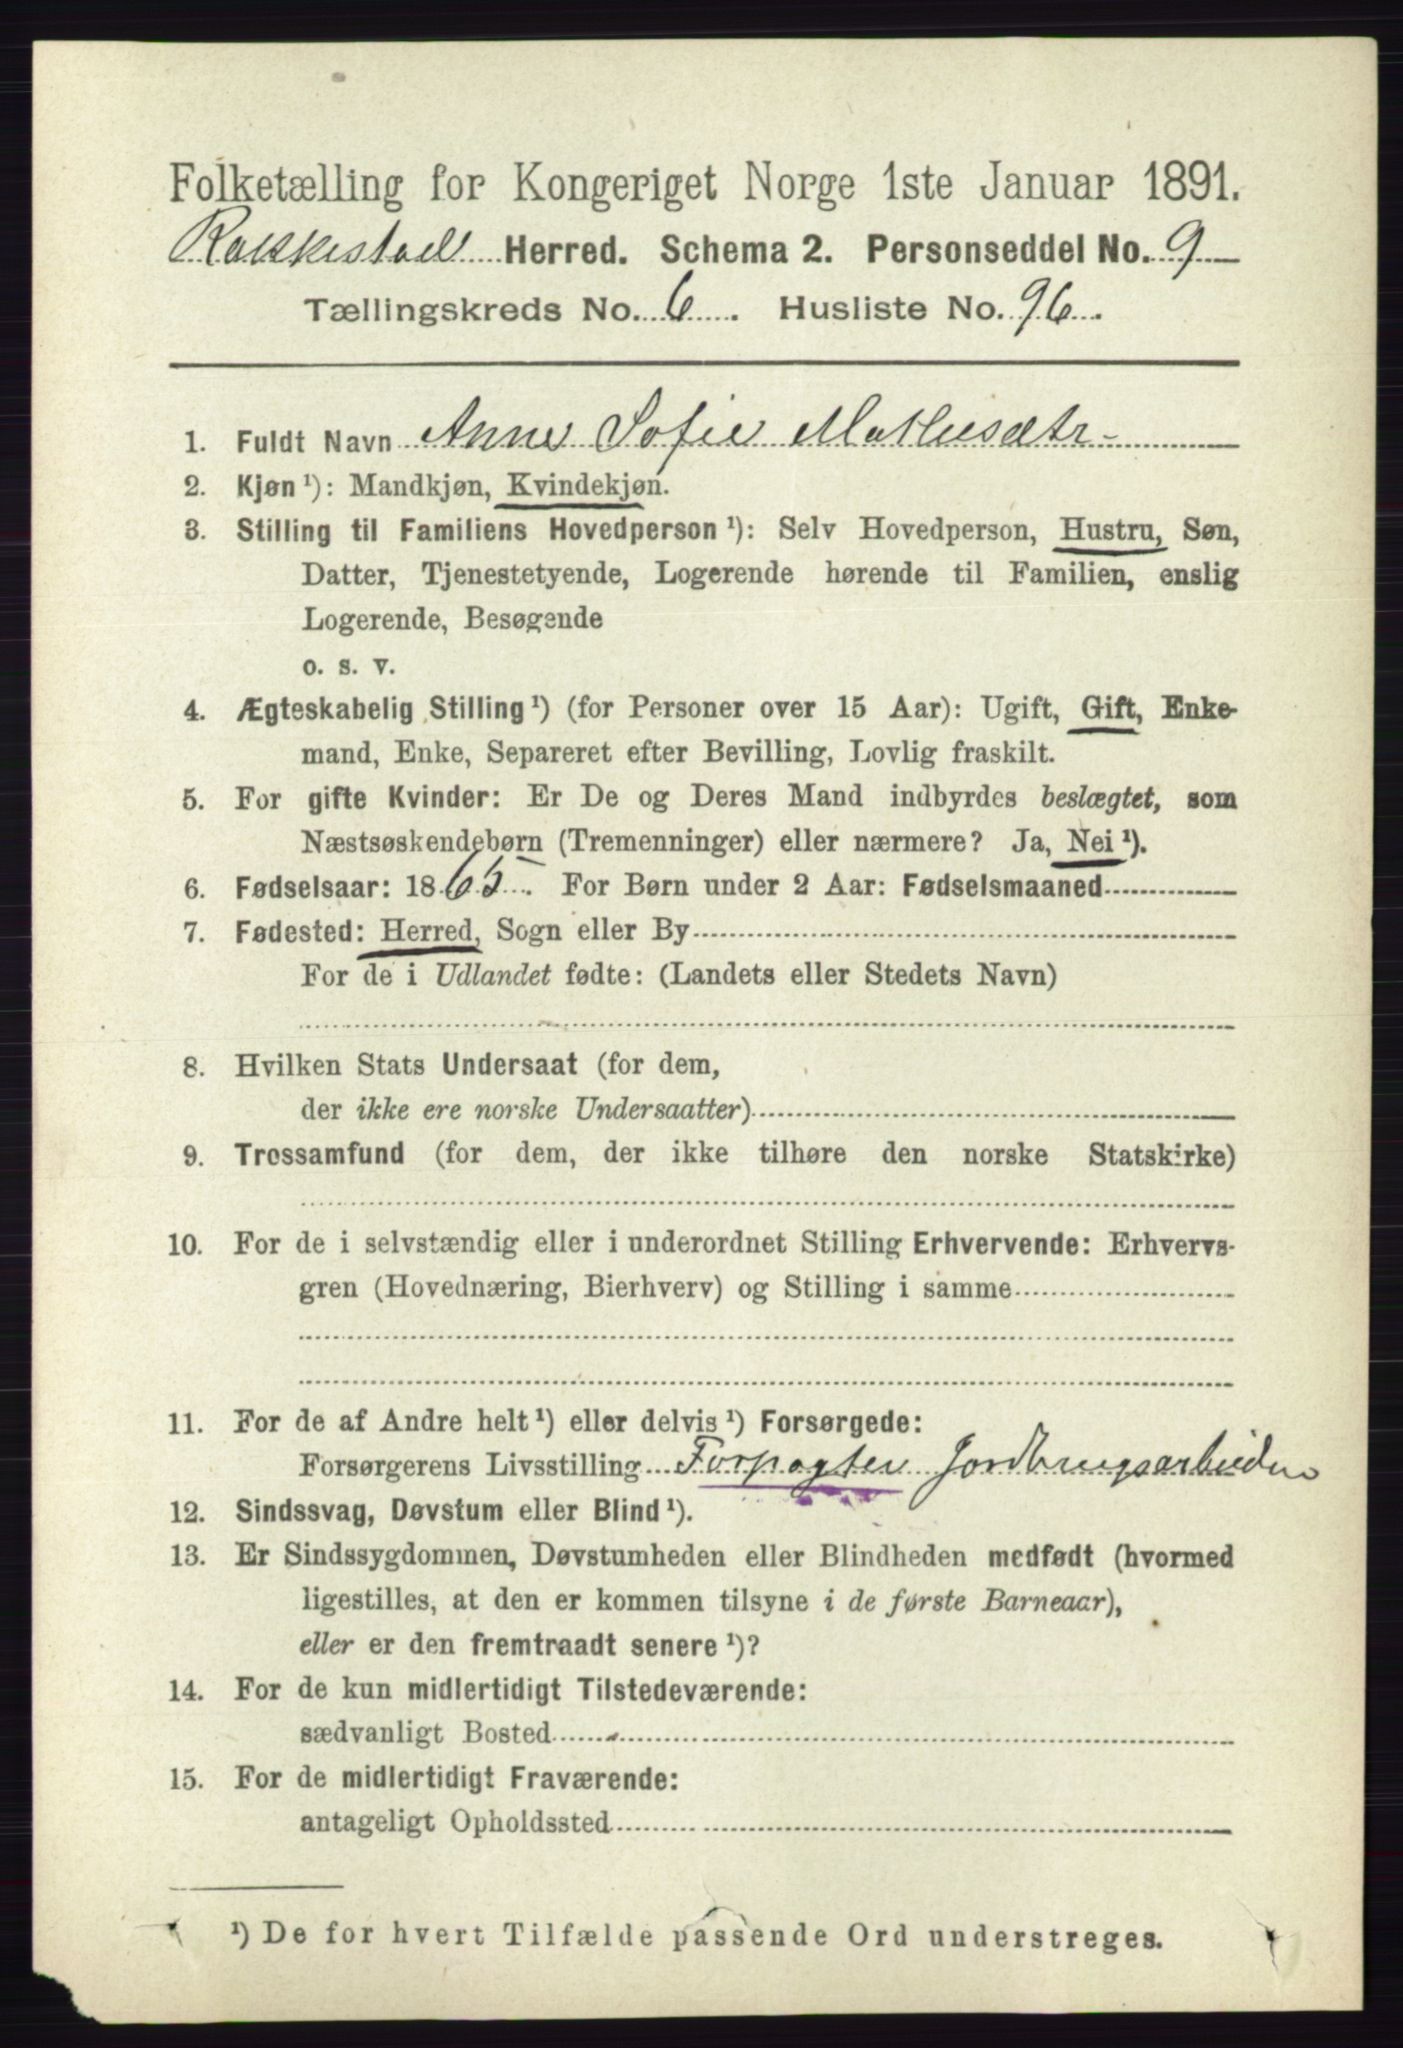 Folketælling for Kongeriget Norge 1ste Januar 1891.
Rakkestad Herred. Schema 2. Personseddel No. 9
Tællingskreds No. 6. Husliste No. 96.
1. Fuldt Navn Anne Sofie
2. Kjøn ¹): Mandkjøn, Kvindekjøn.
3. Stilling til Familiens Hovedperson ¹): Selv Hovedperson, Hustru, Søn,
Datter, Tjenestetyende, Logerende hørende til Familien, enslig
Logerende, Besøgende
o. s. v.
4. Ægteskabelig Stilling ¹) (for Personer over 15 Aar): Ugift, Gift, Enke-
mand, Enke, Separeret efter Bevilling, Lovlig fraskilt.
5. For gifte Kvinder: Er De og Deres Mand indbyrdes beslægtet, som
Næstsøskendebørn (Tremenninger) eller nærmere? Ja, Nei ¹).
6. Fødselsaar: 1865. For Børn under 2 Aar: Fødselsmaaned
7. Fødested: Herred, Sogn eller By
For de i Udlandet fødte: (Landets eller Stedets Navn)
8. Hvilken Stats Undersaat (for dem,
der ikke ere norske Undersaatter)
9. Trossamfund (for dem, der ikke tilhøre den norske Statskirke)
10. For de i selvstændig eller i underordnet Stilling Erhvervende: Erhvervs-
gren (Hovednæring, Bierhverv) og Stilling i samme
11. For de af Andre helt ¹) eller delvis ¹) Forsørgede:
Forsørgerens Livsstilling Forpagter Jordbrugsarbeider
12. Sindssvag, Døvstum eller Blind ¹).
13. Er Sindssygdommen, Døvstumheden eller Blindheden medfødt (hvormed
ligestilles, at den er kommen tilsyne i de første Barneaar),
eller er den fremtraadt senere ¹)?
14. For de kun midlertidigt Tilstedeværende:
sædvanligt Bosted
15. For de midlertidigt Fraværende:
antageligt Opholdssted
¹) De for hvert Tilfælde passende Ord understreges.